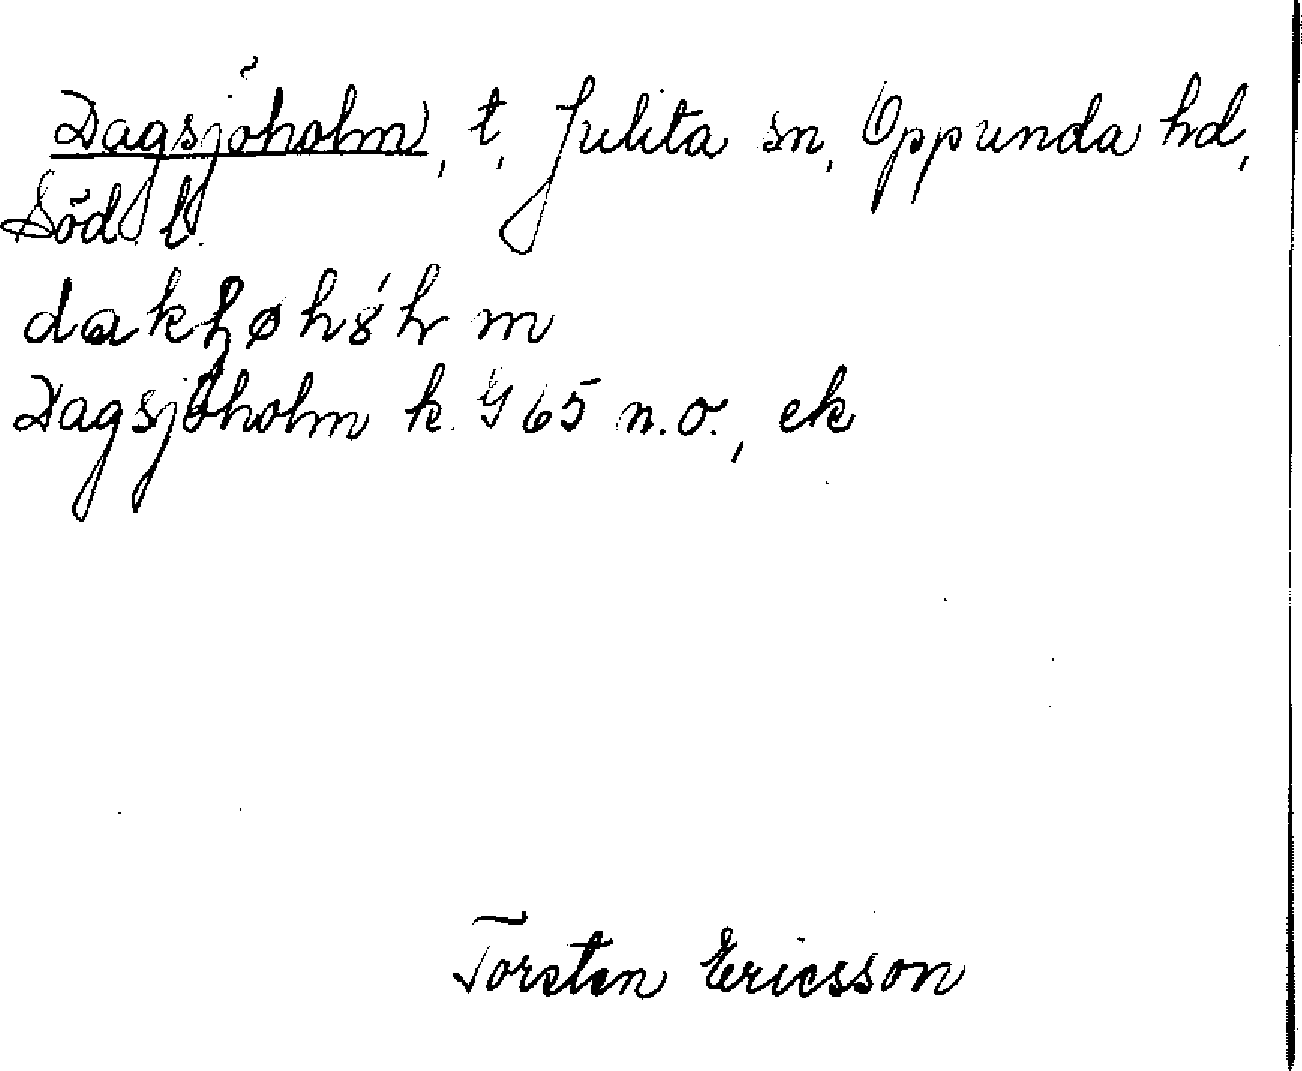 Dagsjöholm, t, Julita sn, Oppunda hd,
Söd. l.
Dagsjöholm k. G 65 n.o., ek
Torsten Ericsson